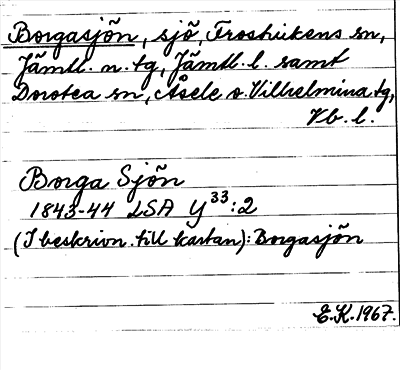 Borgasjön, sjö, Frostvikens sn,
Jämtl. n. tg, Jämtl. l. samt
Dorotea sn, Åsele o. Vilhelmina tg,
Vb. l.
Borga Sjön
1843-44 LSA Y 33:2
(I beskrivn. till kartan): Borgasjön
E.K. 1967.